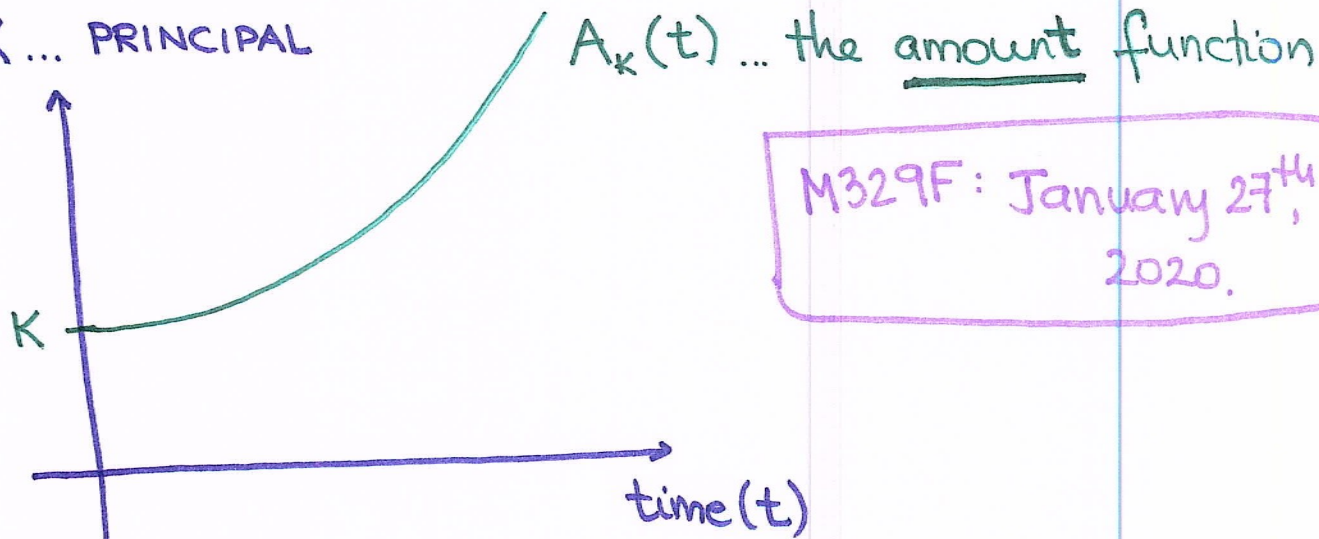 ... PRINCIPAL
A_K(t) ... the amount function
M329F: January 27th,
2020.
K
time(t)